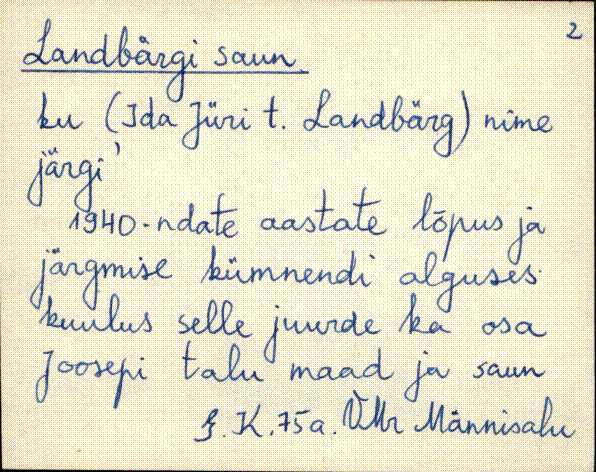 2
Landbärgi saun
ku (Ida Jüri t. Landbärg) nime
järgi'
1940-ndate aastate lõpus ja
järgmise kümnendi alguses
kuulus selle juurde ka osa
Joosepi talu maad ja saun
K. 75a. VMr Männisalu